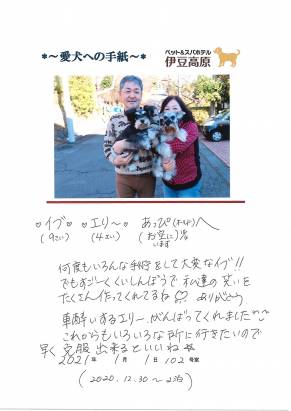 *~愛犬への手紙~*
ペット&スパホテル
伊豆高原
♡イブ♡ ♡エリー♡ あっぴ へ
(9さい) (4さい) (お空に
います)
何度もいろんな手術をして大変なイブ!!
でもすごーくくいしんぼうで私達の笑いを
たくさん作ってくれてるね♡ ありがとう
車酔いするエリー、がんばってくれました
これからもいろいろな所に行きたいので
早く克服出来るといいね
2021年 1月 1日 102号室
(2020.12.30~2泊)